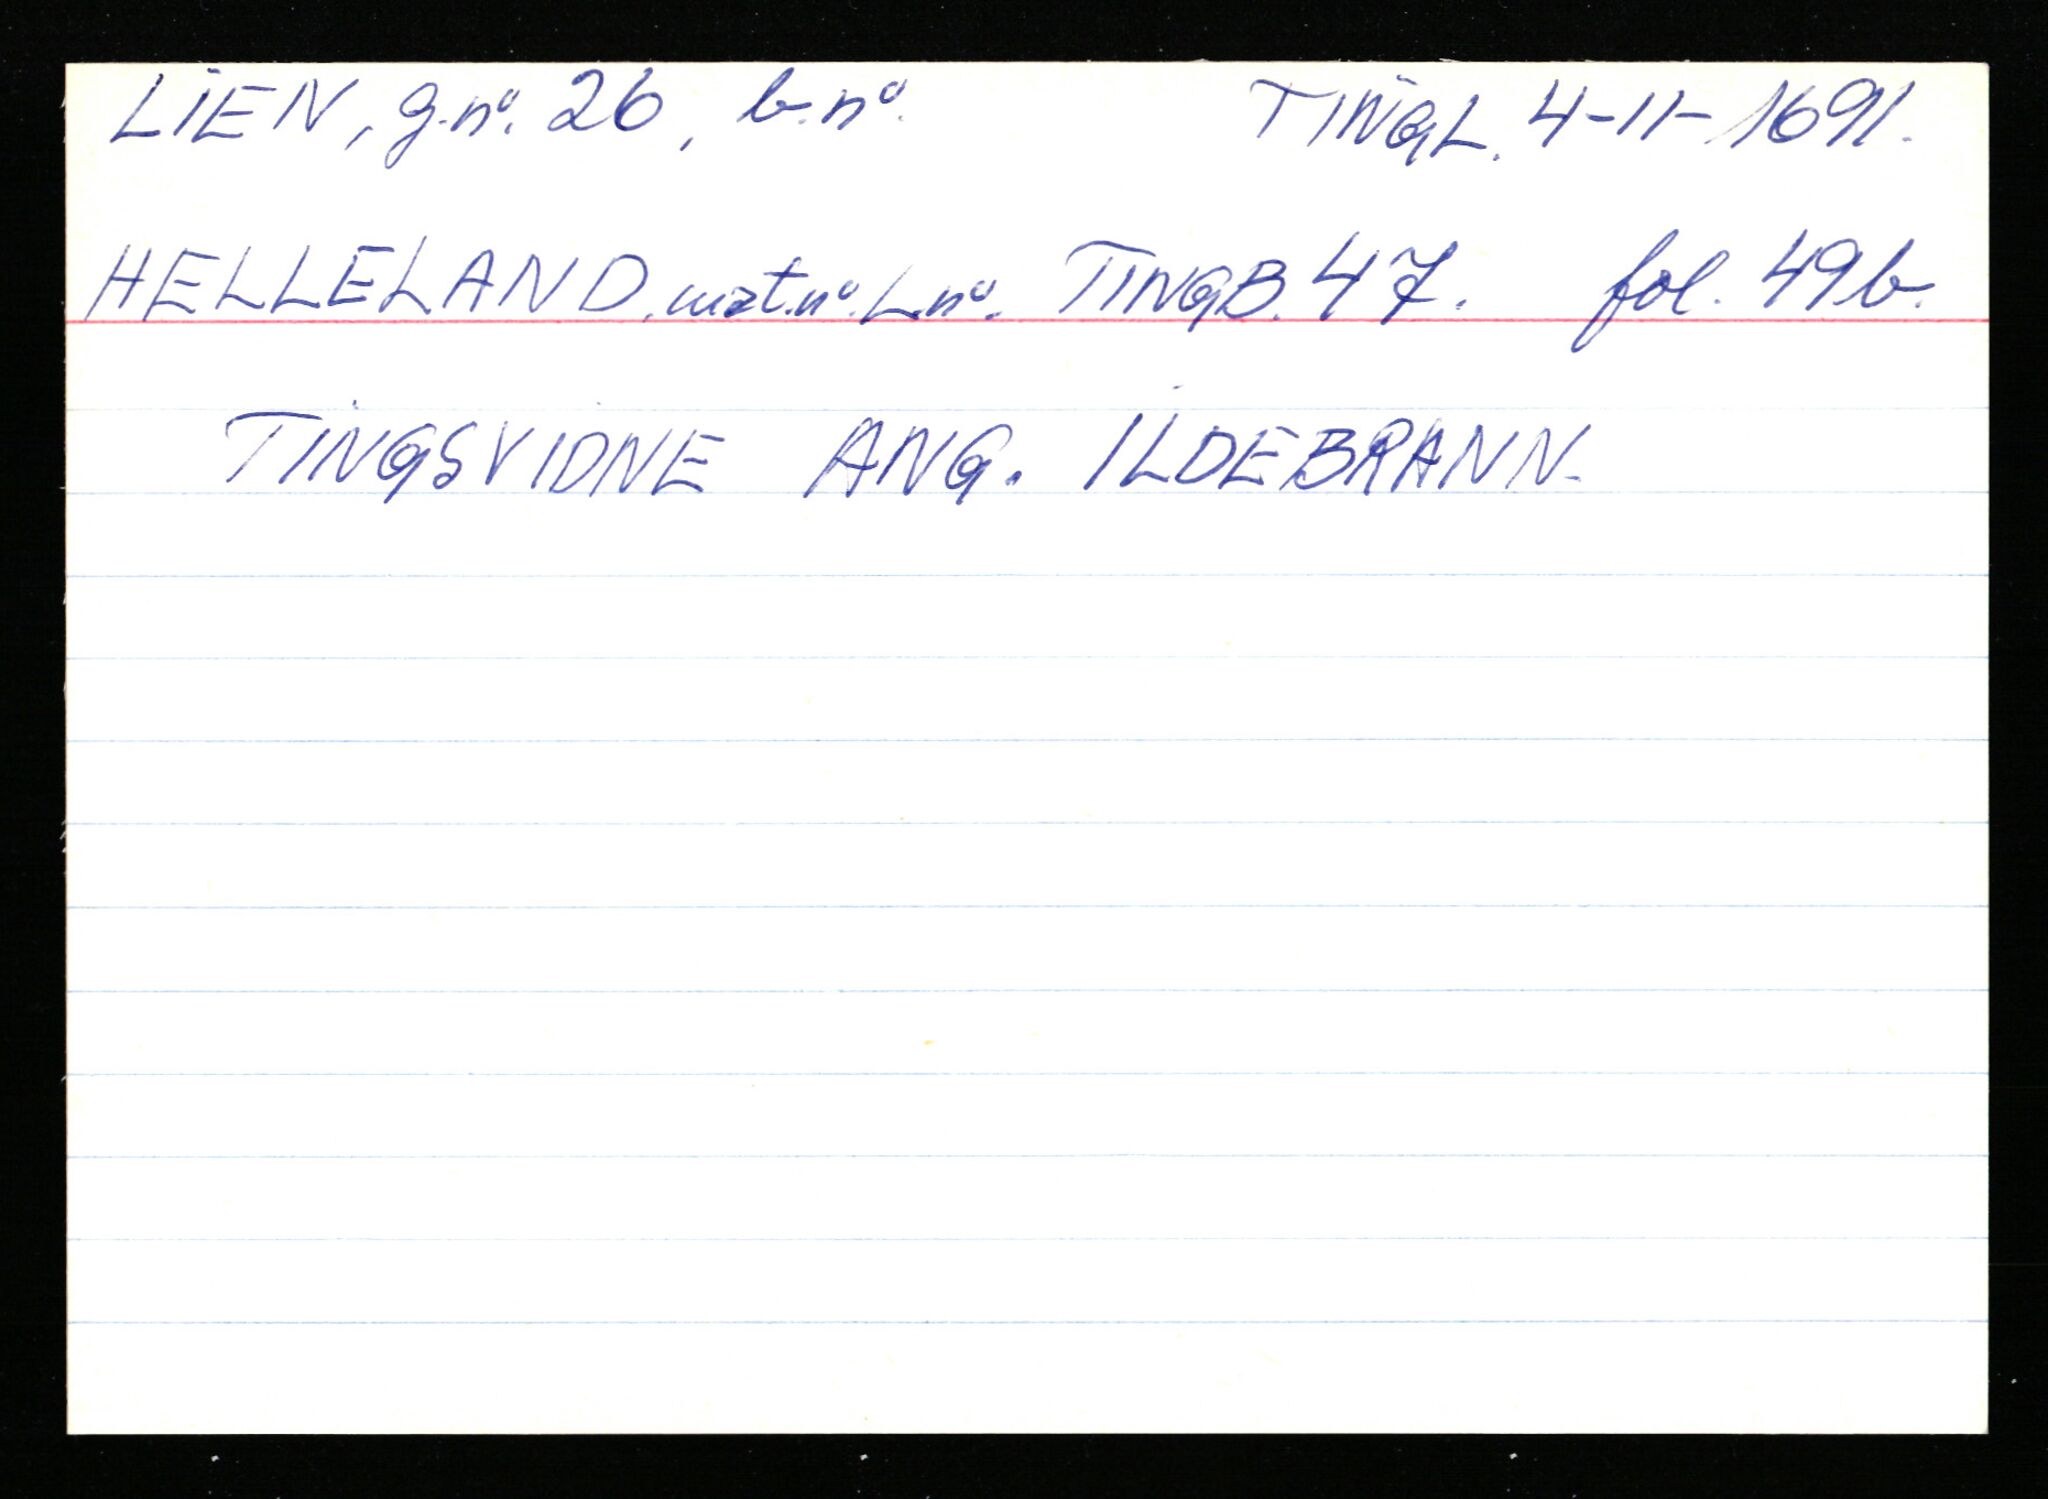 LIEN, g.nº. 26, b.nº. TINGL. 4-11-1691.
HELLELAND. mat.nº. L.nº. TINGB. 47. fol. 49b.
TINGSVIDNE ANG. ILDEBRANN.